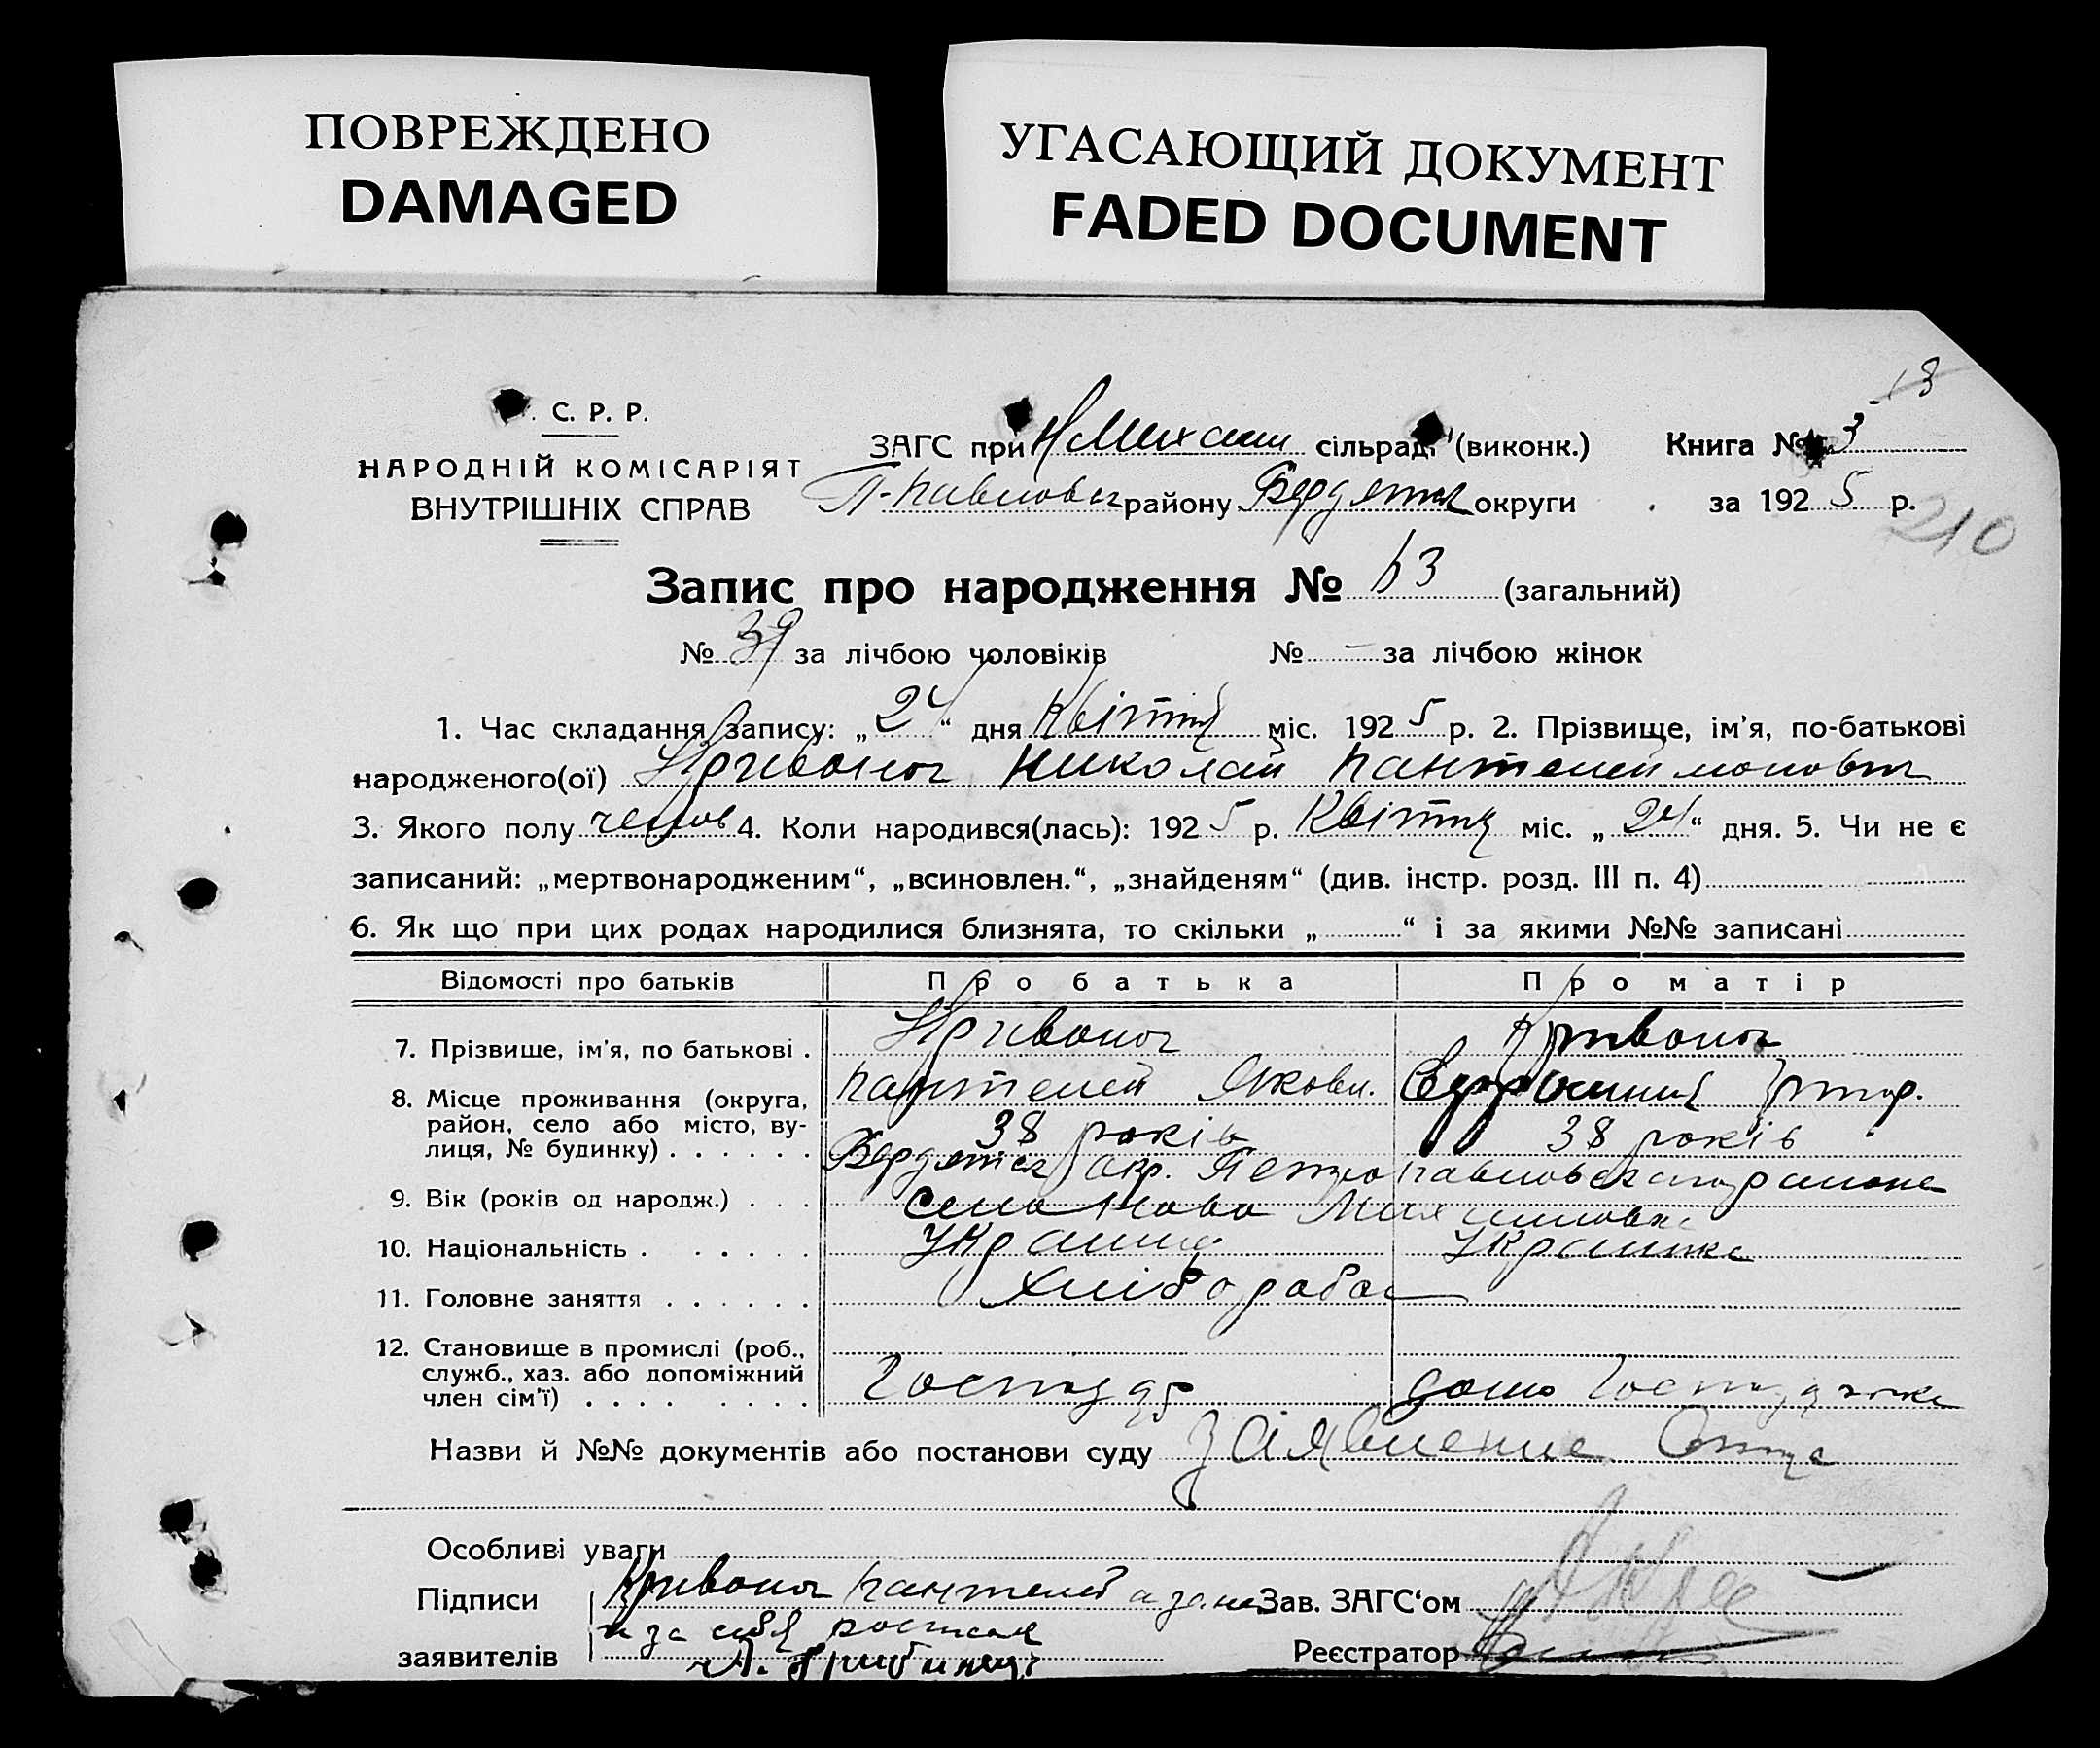 ПОВРЕЖДЕНО
DAMAGED
УГАСАЮЩИЙ ДОКУМЕНТ
FADED DOCUMENT
13
. С. Р. Р.
НАРОДНІЙ КОМІСАРІЯТ
ВНУТРІШНІХ СПРАВ
ЗАГС при НМихайл сільраді (виконк.) Книга № 3
П-Павловск району Бердянск округи за 1925 р.
210
Запис про народження № 63 (загальний)
№ 39 за лічбою чоловіків № – за лічбою жінок
1. Час складання запису: „24“ дня Квітня міс. 1925 р. 2. Прізвище, ім'я, по-батькові
народженого(ої) Кривонос Николай Пантелеймонович
3. Якого полу 4. Коли народився(лась): 1925 р. Квітня міс. „24“ дня. 5. Чи не є
записаний: „мертвонародженим“, „всиновлен.“, „знайденям“ (див. інстр. розд. III п. 4)
6. Як що при цих родах народилися близнята, то скільки „ “ і за якими №№ записані
Відомості про батьків Про батька Про матір
7. Прізвище, ім'я, по батькові . Кривонос Кривонос
Пантелей Яковл.
8. Місце проживання (округа, район, село або місто, вулиця, № будинку) . . . . . .
38 років 38 років
Бердянск окр. Петропавловского района
9. Вік (років од народж.) . . . село Ново Михайловка
10. Національність . . . . . . Украинец Украинка
11. Головне заняття . . . . . . Хлібороба
12. Становище в промислі (роб., служб., хаз. або допоміжний член сім'ї) . . . . . . . . Господар дом Господарка
Назви й №№ документів або постанови суду Заявление Отца
Особливі уваги
Підписи Кривонос Пантелей а за не Зав. ЗАГС'ом
заявителів и за себя росписал Реєстратор